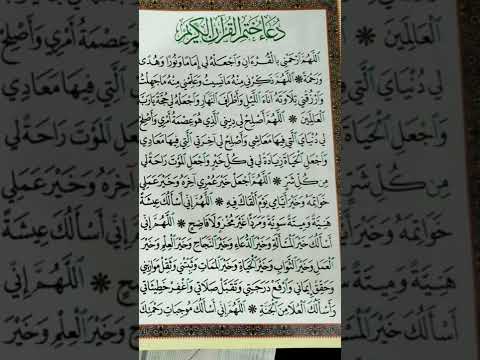 دُعَاءُ خَتْمِ الْقُرْآنِ الْكَرِيمِ
اللَّهُمَّ ارْحَمْنِي بِالْقُرْءَانِ وَاجْعَلْهُ لِي إِمَامًا وَنُورًا وَهُدًى
وَرَحْمَةً * اللَّهُمَّ ذَكِّرْنِي مِنْهُ مَا نَسِيتُ وَعَلِّمْنِي مِنْهُ مَا جَهِلْتُ
وَارْزُقْنِي تِلَاوَتَهُ آنَاءَ اللَّيْلِ وَأَطْرَافَ النَّهَارِ وَاجْعَلْهُ لِي حُجَّةً يَا رَبَّ
الْعَالَمِينَ * اللَّهُمَّ أَصْلِحْ لِي دِينِي الَّذِي هُوَ عِصْمَةُ أَمْرِي وَأَصْلِحْ
لِي دُنْيَايَ الَّتِي فِيهَا مَعَاشِي وَأَصْلِحْ لِي آخِرَتِي الَّتِي فِيهَا مَعَادِي
وَاجْعَلِ الْحَيَاةَ زِيَادَةً لِي فِي كُلِّ خَيْرٍ وَاجْعَلِ الْمَوْتَ رَاحَةً لِي
مِنْ كُلِّ شَرٍّ * اللَّهُمَّ اجْعَلْ خَيْرَ عُمْرِي آخِرَهُ وَخَيْرَ عَمَلِي
خَوَاتِمَهُ وَخَيْرَ أَيَّامِي يَوْمَ أَلْقَاكَ فِيهِ * اللَّهُمَّ إِنِّي أَسْأَلُكَ عِيشَةً
هَنِيَّةً وَمِيتَةً سَوِيَّةً وَمَرَدًّا غَيْرَ مُخْزٍ وَلَا فَاضِحٍ * اللَّهُمَّ إِنِّي
أَسْأَلُكَ خَيْرَ الْمَسْأَلَةِ وَخَيْرَ الدُّعَاءِ وَخَيْرَ النَّجَاحِ وَخَيْرَ الْعِلْمِ وَخَيْرَ
الْعَمَلِ وَخَيْرَ الثَّوَابِ وَخَيْرَ الْحَيَاةِ وَخَيْرَ الْمَمَاتِ وَثَبِّتْنِي وَثَقِّلْ مَوَازِينِي
وَحَقِّقْ إِيمَانِي وَارْفَعْ دَرَجَتِي وَتَقَبَّلْ صَلَاتِي وَاغْفِرْ خَطِيئَاتِي
وَأَسْأَلُكَ الْعُلَا مِنَ الْجَنَّةِ * اللَّهُمَّ إِنِّي أَسْأَلُكَ مُوجِبَاتِ رَحْمَتِكَ